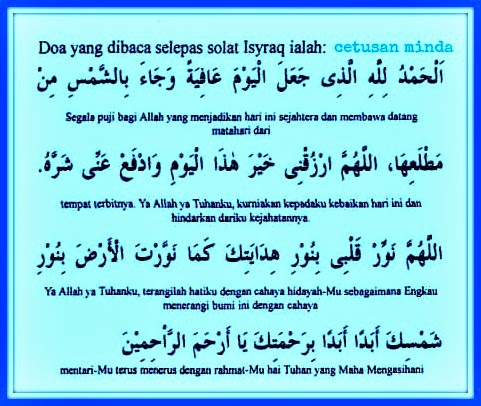 Doa yang dibaca selepas solat Isyraq ialah: cetusan minda
اَلْحَمْدُ لِلَّهِ الَّذِى جَعَلَ الْيَوْمَ عَافِيَةً وَجَاءَ بِالشَّمْسِ مِنْ
Segala puji bagi Allah yang menjadikan hari ini sejahtera dan membawa datang
matahari dari
مَطْلَعِهَا، اللَّهُمَّ ارْزُقْنِى خَيْرَ هٰذَا الْيَوْمِ وَادْفَعْ عَنِّى شَرَّهُ.
tempat terbitnya. Ya Allah ya Tuhanku, kurniakan kepadaku kebaikan hari ini dan
hindarkan dariku kejahatannya.
اللَّهُمَّ نَوِّرْ قَلْبِى بِنُورِ هِدَايَتِكَ كَمَا نَوَّرْتَ الْأَرْضَ بِنُورِ
Ya Allah ya Tuhanku, terangilah hatiku dengan cahaya hidayah-Mu sebagaimana Engkau
menerangi bumi ini dengan cahaya
شَمْسِكَ أَبَدًا أَبَدًا بِرَحْمَتِكَ يَا أَرْحَمَ الرَّاحِمِيْنَ
mentari-Mu terus menerus dengan rahmat-Mu hai Tuhan yang Maha Mengasihani